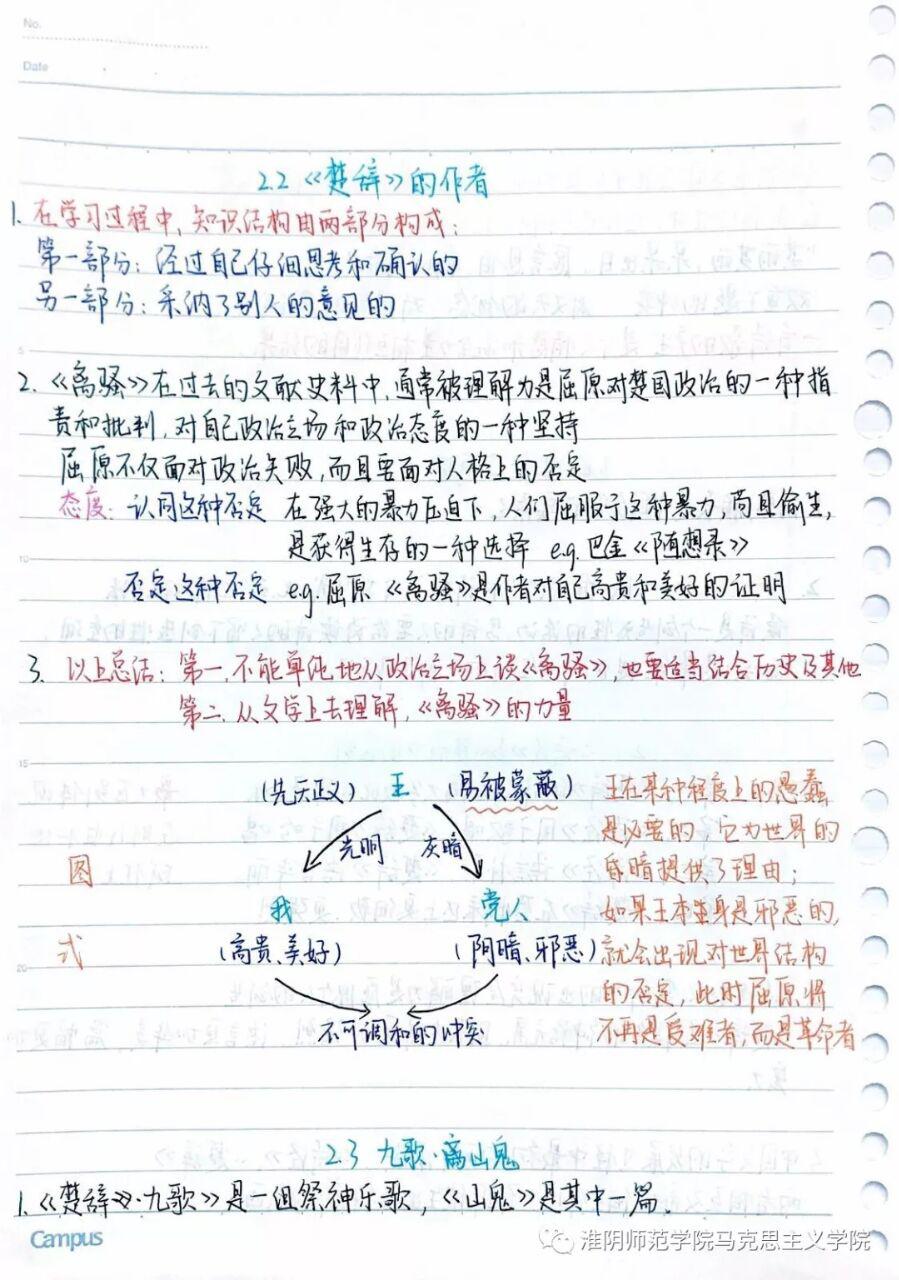 No.
Date
2.2《楚辞》的作者
1. 在学习过程中，知识结构由两部分构成：
第一部分：经过自己仔细思考和确认的
另一部分：采纳了别人的意见的
2.《离骚》在过去的文献史料中，通常被理解为是屈原对楚国政治的一种指
责和批判，对自己政治立场和政治态度的一种坚持
屈原不仅面对政治失败，而且要面对人格上的否定
态度：认同这种否定 在强大的暴力压迫下，人们屈服于这种暴力，苟且偷生，
是获得生存的一种选择 e.g.巴金《随想录》
否定这种否定 e.g.屈原《离骚》是作者对自己高贵和美好的证明
3. 以上总结：第一.不能单纯地从政治立场上谈《离骚》，也要适当结合历史及其他
第二.从文学上去理解，《离骚》的力量
图式
(先天正义) 王 (易被蒙蔽)
光明 灰暗
我 党人
(高贵、美好) (阴暗、邪恶)
不可调和的冲突
王在某种程度上的愚蠢
是必要的，它为世界的
昏暗提供了理由；
如果王本身是邪恶的，
就会出现对世界结构
的否定，此时屈原将
不再是受难者，而是革命者
2.3 九歌·山鬼
1.《楚辞》·九歌》是一组祭神乐歌，《山鬼》是其中一篇.
Campus
淮阴师范学院马克思主义学院